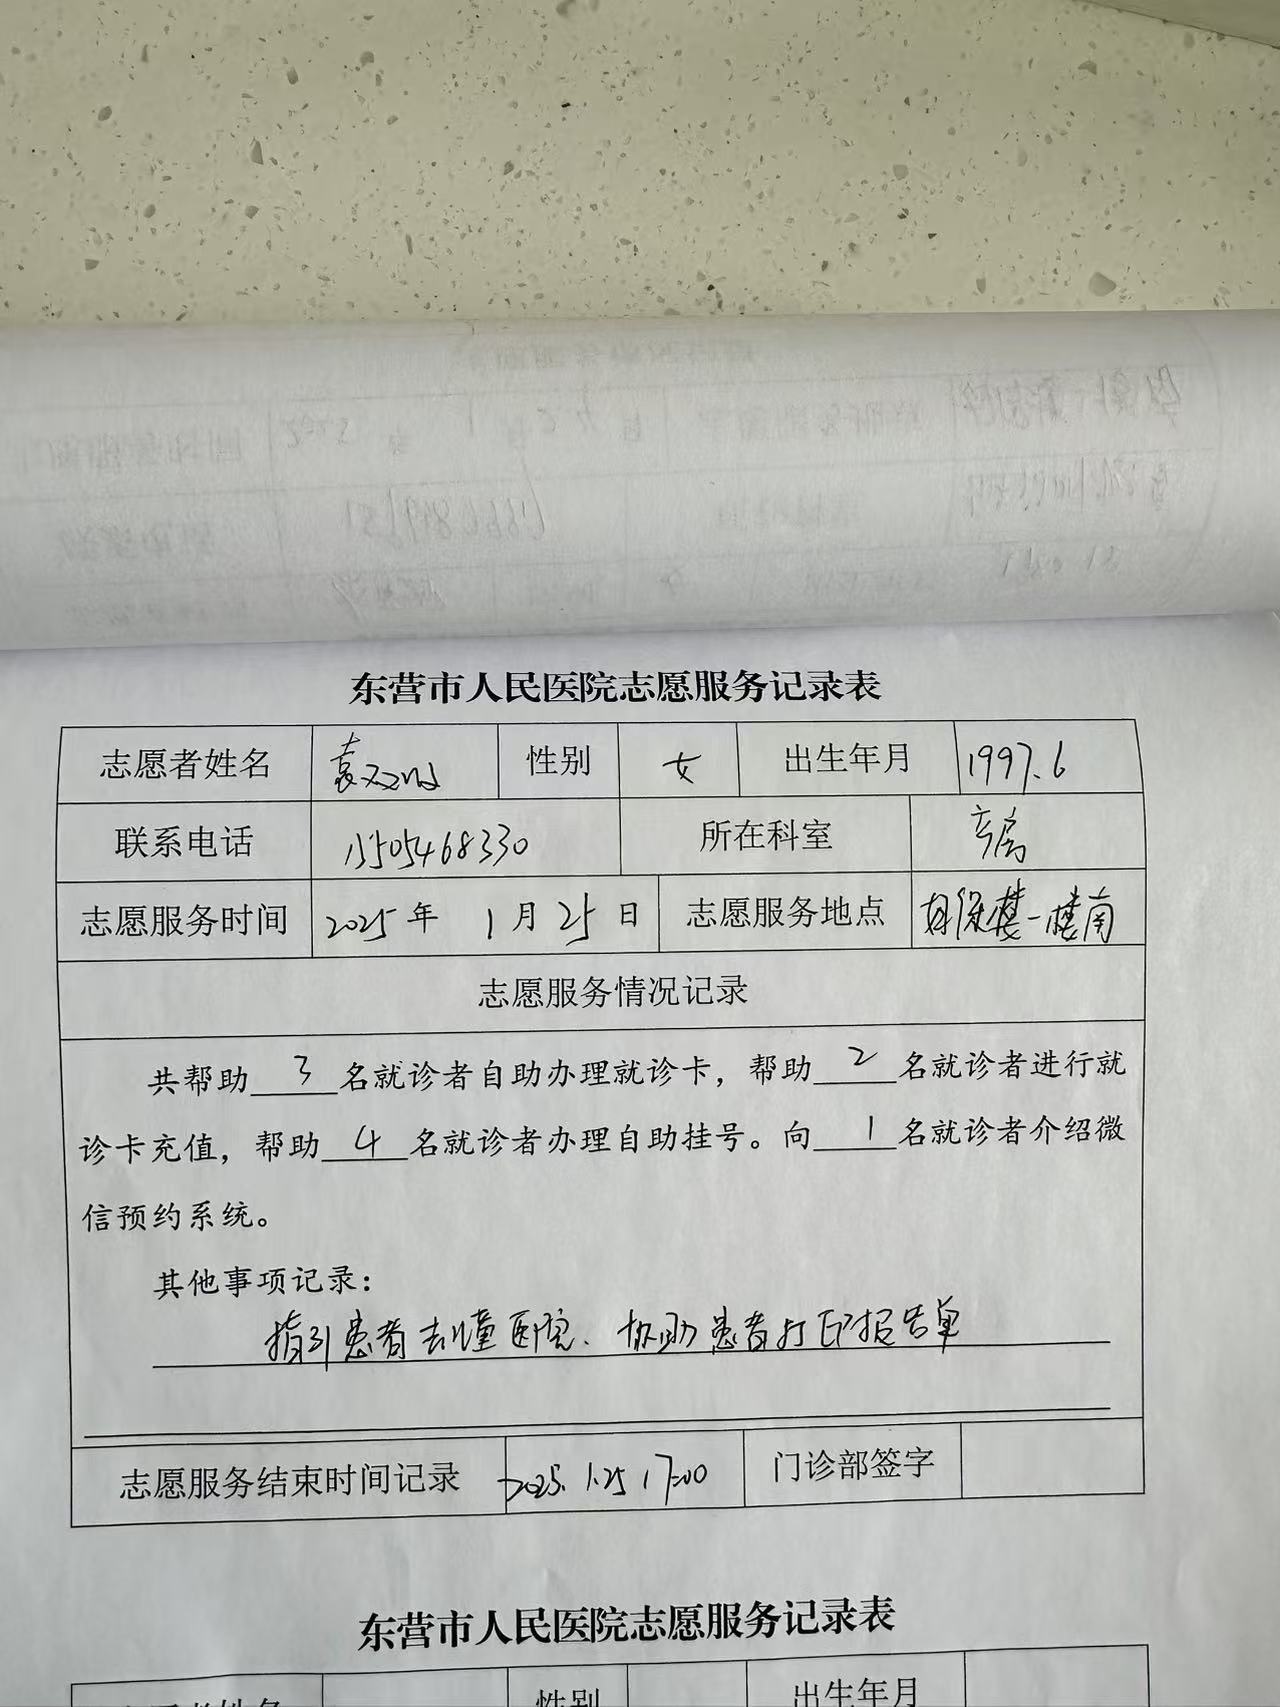 东营市人民医院志愿服务记录表
志愿者姓名 袁双双 性别 女 出生年月 1997.6
联系电话 15505468330 所在科室 产房
志愿服务时间 2025年 1月25日 志愿服务地点 妇保楼一楼南
志愿服务情况记录
共帮助 3 名就诊者自助办理就诊卡，帮助 2 名就诊者进行就
诊卡充值，帮助 4 名就诊者办理自助挂号。向 1 名就诊者介绍微
信预约系统。
其他事项记录：
指引患者去儿童医院、协助患者打印报告单
志愿服务结束时间记录 2025.1.25 17:00 门诊部签字
东营市人民医院志愿服务记录表
志愿者姓名 性别 出生年月